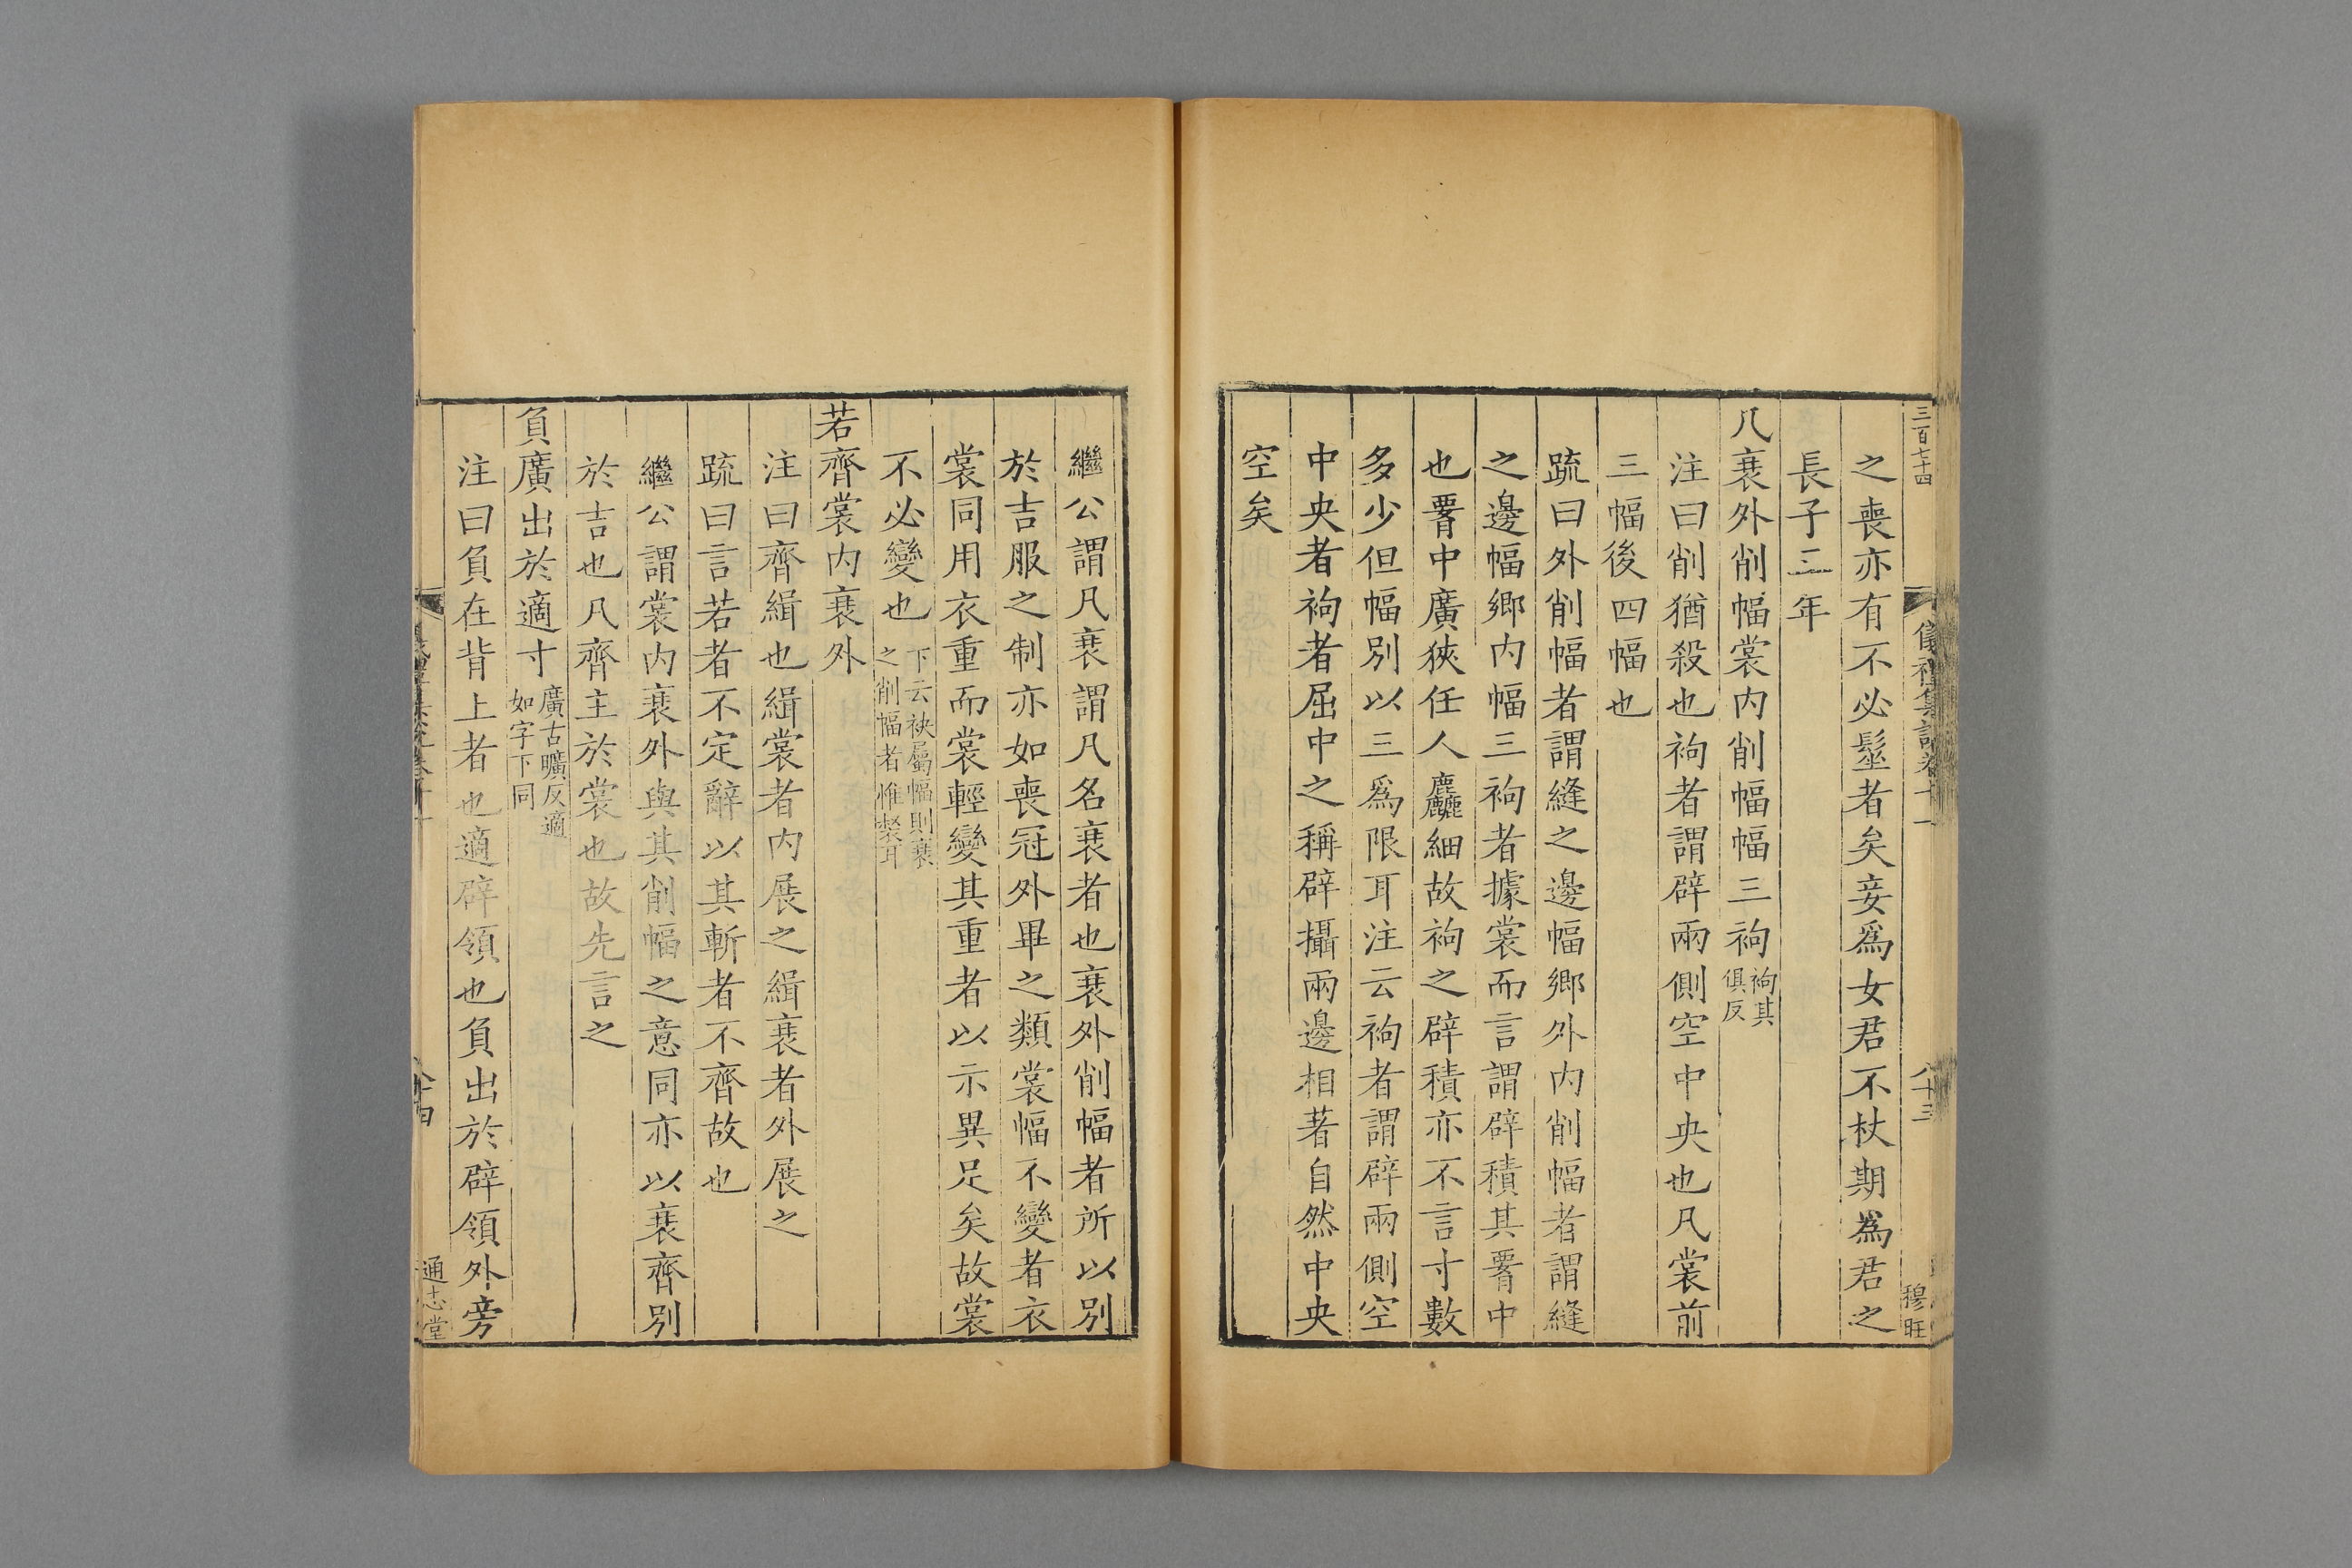 三百七十四
儀禮集說卷十一
八十三
穆旺
之喪亦有不必髽者矣妾爲女君不杖期爲君之
長子三年
凡衰外削幅裳内削幅幅三袧袧其俱反
注曰削猶殺也袧者謂辟兩側空中央也凡裳前
三幅後四幅也
疏曰外削幅者謂縫之邊幅鄉外内削幅者謂縫
之邊幅鄉内幅三袧者據裳而言謂辟積其要中
也要中廣狹任人麤細故袧之辟積亦不言寸數
多少但幅别以三爲限耳注云袧者謂辟兩側空
中央者袧者屈中之稱辟攝兩邊相著自然中央
空矣
繼公謂凡衰謂凡名衰者也衰外削幅者所以别
於吉服之制亦如喪冠外畢之類裳幅不變者衣
裳同用衣重而裳輕變其重者以示異足矣故裳
不必變也下云袂屬幅則衰之削幅者惟裻耳
若齊裳内衰外
注曰齊緝也緝裳者内展之緝衰者外展之
疏曰言若者不定辭以其斬者不齊故也
繼公謂裳内衰外與其削幅之意同亦以衰齊别
於吉也凡齊主於裳也故先言之
負廣出於適寸廣古曠反適如字下同
注曰負在背上者也適辟領也負出於辟領外旁
八十四
通志堂